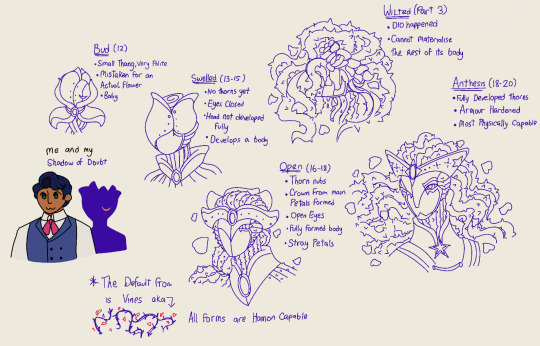 Bud (12)
• Small Thang, Very Polite
• Mistaken for an
Actual Flower
• Baby
Swelled (13-15)
• No thorns yet
• Eyes Closed
• Head not developed
Fully
• Develops a body
Wilted (Part 3)
• DIO happened
• Cannot Materialise
The Rest of its body
Anthesis (18-20)
• Fully Developed Thorns
• Armour Hardened
• Most Physically Capable
Open (16-18)
• Thorn nubs
• Crown from main
Petals formed
• Open Eyes
• Fully formed body
• Stray Petals
me and my
Shadow of Doubt
* The Default from
is Vines aka
All forms are Hamon Capable